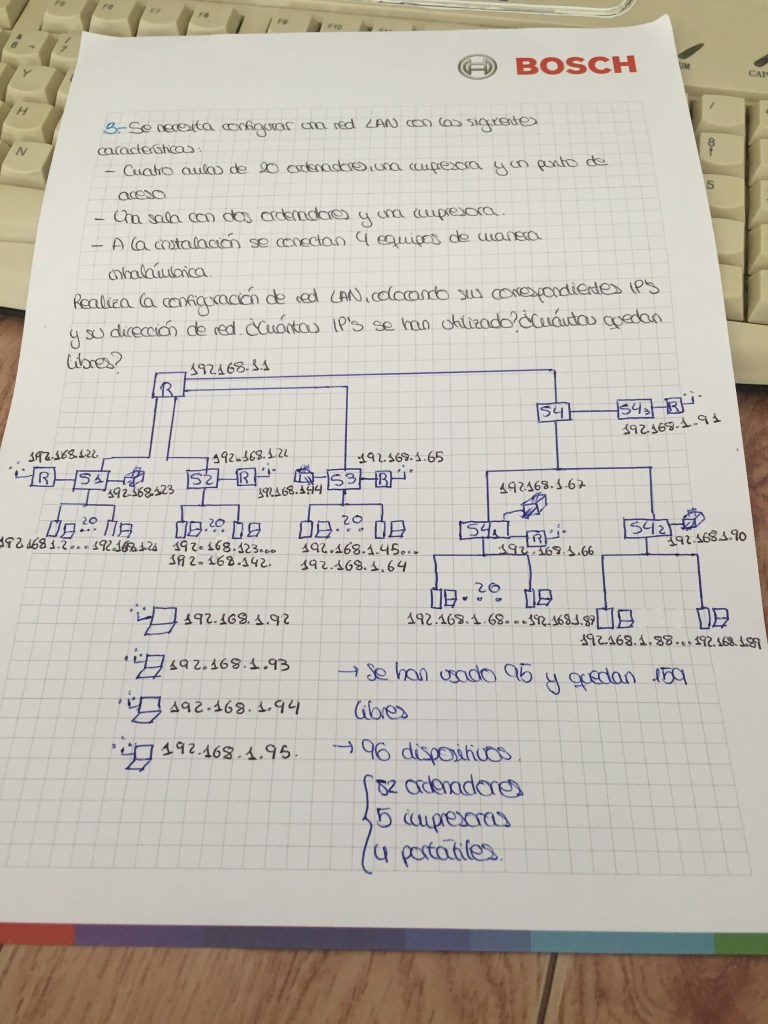 BOSCH
3.- Se necesita configurar una red LAN con las siguientes
características:
- Cuatro aulas de 20 ordenadores, una impresora y un punto de
aceso
- Una sala con dos ordenadores y una impresora.
- A la instalación se conectan 4 equipos de manera
inhalámbrica.
Realiza la configuración de red LAN, colocando sus correspondientes IP'S
y su dirección de red. ¿Cuántas IP'S se han utilizado? ¿Cuántas quedan
libres?
192.168.1.1
R
S4
S43
R
192.168.1.91
192.168.1.22
192.168.1.65
R
S1
S2
R
S3
R
192.168.1.44
192.168.1.67
S41
R
192.168.1.66
S42
192.168.1.90
20
20
20
192.168.1.2...
192.168.1.45...
192.168.1.64
20
192.168.1.68...
192.168.1.88... 192.168.1.89
192.168.1.92
192.168.1.93
192.168.1.94
192.168.1.95.
→ Se han usado 95 y quedan 159
libres
→ 96 dispositivos.
82 ordenadores
5 impresoras
4 portátiles.